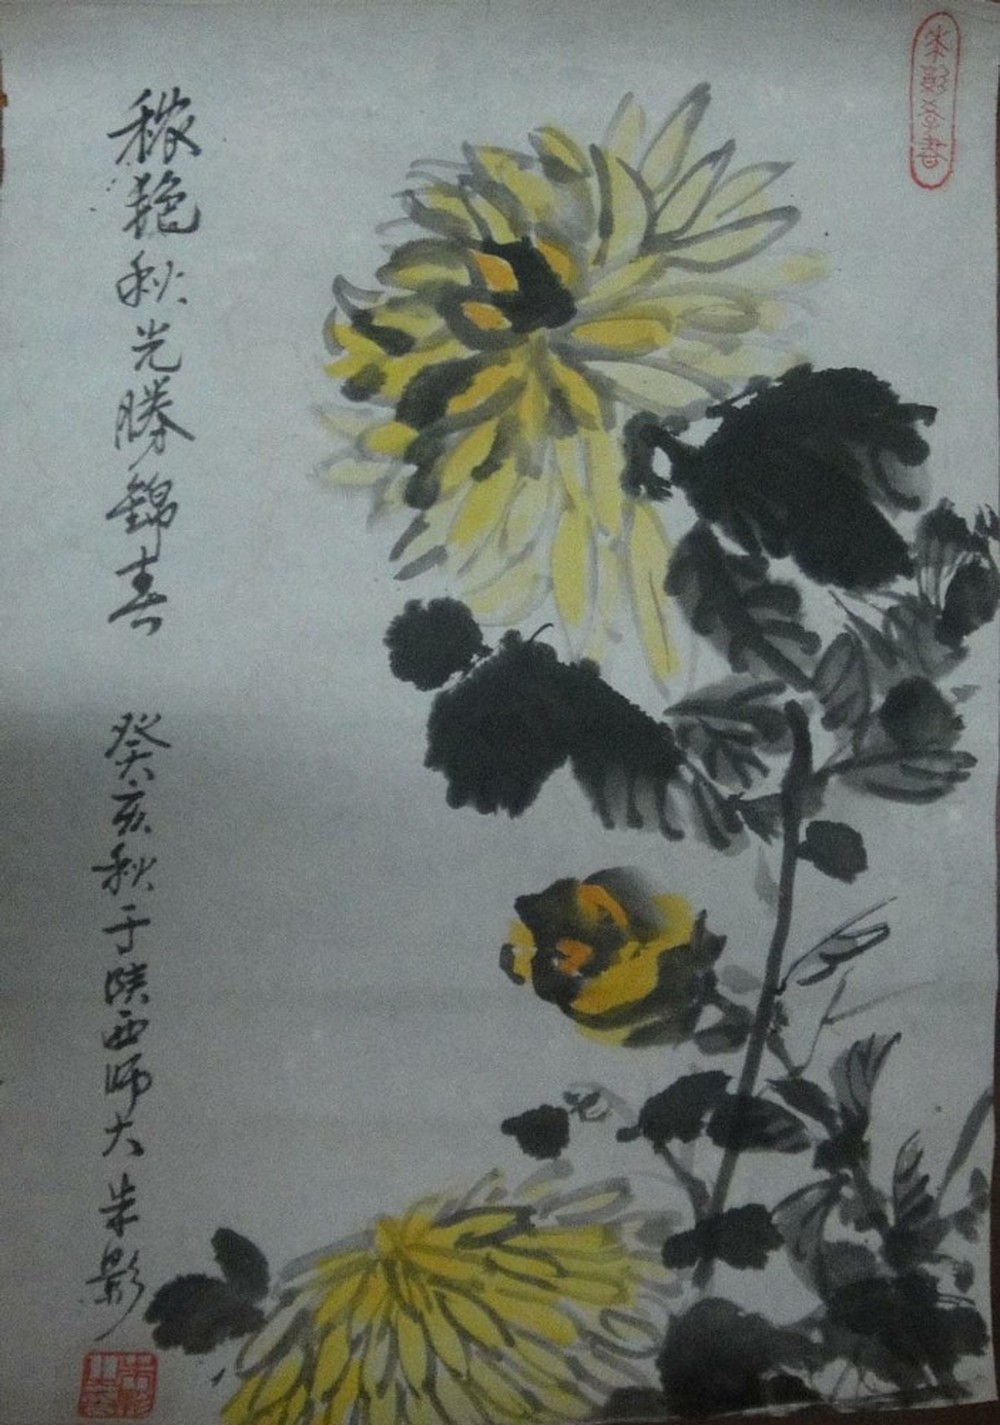 秾艳秋光胜锦春
癸亥秋于陕西师大朱影